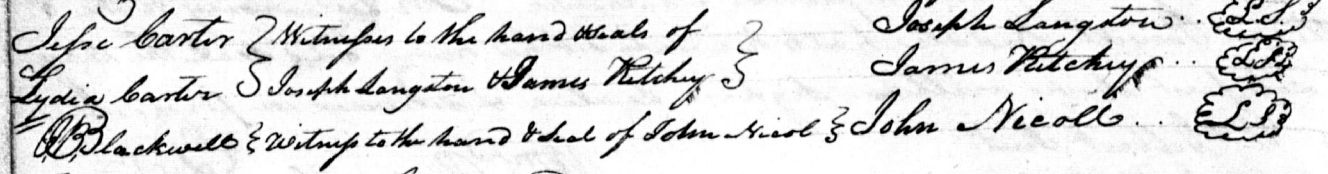 Jesse Carter } Witnesses to the hand & seals of } Joseph Langston .. {L.S.}
Lydia Carter } Joseph Langston & James Ritchey } James Ritchey .. {L.S.}
JB Blackwell } Witness to the hand & Seal of John Nicol } John Nicoll .. {L.S.}